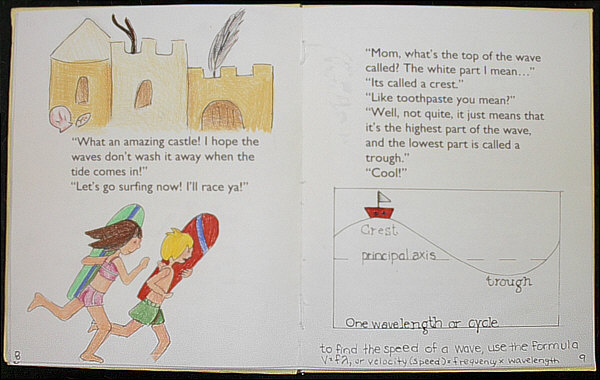 "What an amazing castle! I hope the
waves don't wash it away when the
tide comes in!"
"Let's go surfing now! I'll race ya!"
8
"Mom, what's the top of the wave
called? The white part I mean..."
"Its called a crest."
"Like toothpaste you mean?"
"Well, not quite, it just means that
it's the highest part of the wave,
and the lowest part is called a
trough."
"Cool!"
Crest
principal axis
trough
One wavelength or cycle
to find the speed of a wave, use the formula
V=fλ, or velocity (speed)=frequency x wavelength
9